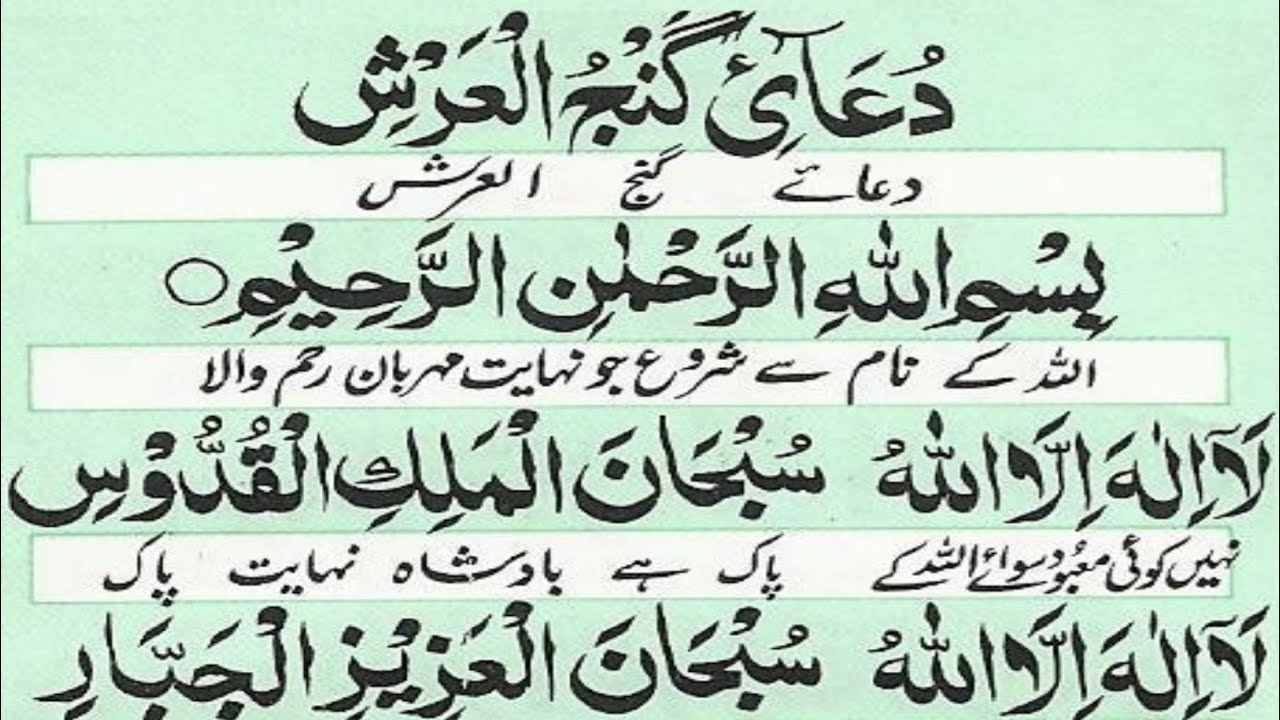 دُعَآئِ گَنْجُ الْعَرْشِ
دعائے گنج العرش
بِسْمِ اللّٰهِ الرَّحْمٰنِ الرَّحِيْمِ ○
اللہ کے نام سے شروع جو نہایت مہربان رحم والا
لَآ اِلٰهَ اِلَّا اللّٰهُ سُبْحَانَ الْمَلِكِ الْقُدُّوْسِ
نہیں کوئی معبود سوائے اللہ کے پاک ہے بادشاہ نہایت پاک
لَآ اِلٰهَ اِلَّا اللّٰهُ سُبْحَانَ الْعَزِيْزِ الْجَبَّارِ